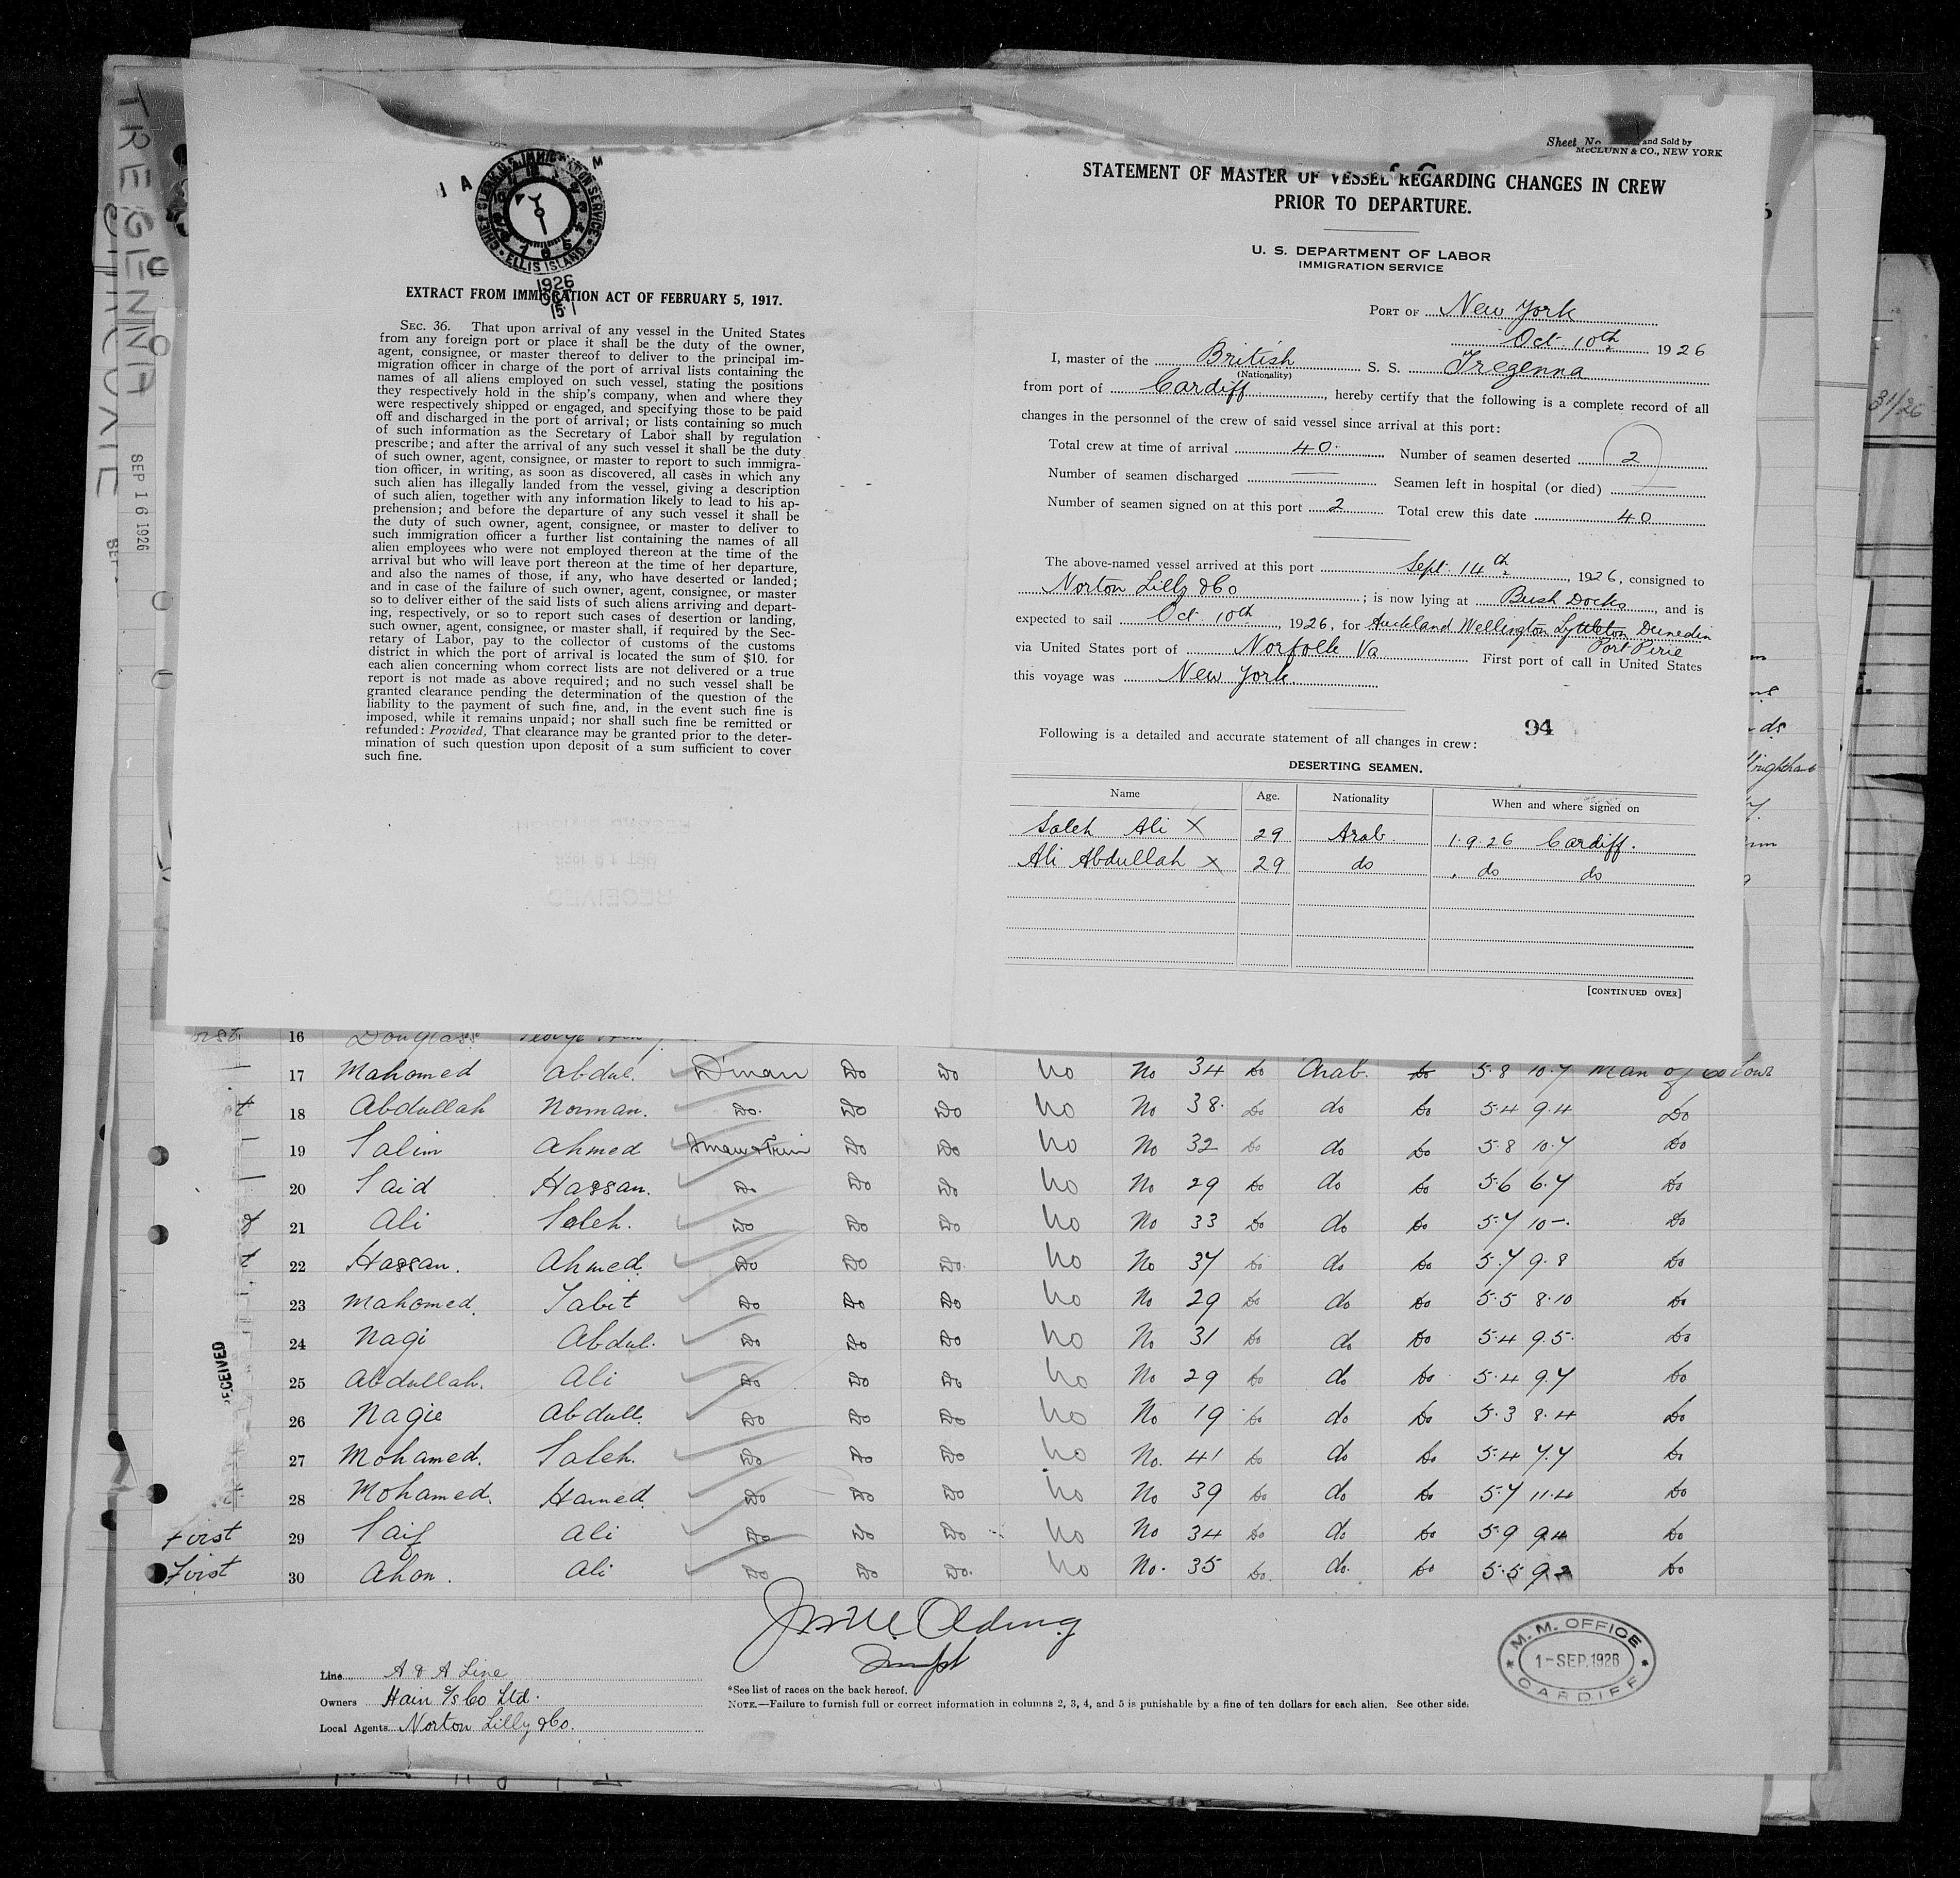 TREGENNA
SEP 16 1926
CHIEF CLERK U.S. IMMIGRATION SERVICE
ELLIS ISLAND
1926
OCT
15
EXTRACT FROM IMMIGRATION ACT OF FEBRUARY 5, 1917.
SEC. 36. That upon arrival of any vessel in the United States
from any foreign port or place it shall be the duty of the owner,
agent, consignee, or master thereof to deliver to the principal im-
migration officer in charge of the port of arrival lists containing the
names of all aliens employed on such vessel, stating the positions
they respectively hold in the ship's company, when and where they
were respectively shipped or engaged, and specifying those to be paid
off and discharged in the port of arrival; or lists containing so much
of such information as the Secretary of Labor shall by regulation
prescribe; and after the arrival of any such vessel it shall be the duty
of such owner, agent, consignee, or master to report to such immigra-
tion officer, in writing, as soon as discovered, all cases in which any
such alien has illegally landed from the vessel, giving a description
of such alien, together with any information likely to lead to his ap-
prehension; and before the departure of any such vessel it shall be
the duty of such owner, agent, consignee, or master to deliver to
such immigration officer a further list containing the names of all
alien employees who were not employed thereon at the time of the
arrival but who will leave port thereon at the time of her departure,
and also the names of those, if any, who have deserted or landed;
and in case of the failure of such owner, agent, consignee, or master
so to deliver either of the said lists of such aliens arriving and depart-
ing, respectively, or so to report such cases of desertion or landing,
such owner, agent, consignee, or master shall, if required by the Sec-
retary of Labor, pay to the collector of customs of the customs
district in which the port of arrival is located the sum of $10. for
each alien concerning whom correct lists are not delivered or a true
report is not made as above required; and no such vessel shall be
granted clearance pending the determination of the question of the
liability to the payment of such fine, and, in the event such fine is
imposed, while it remains unpaid; nor shall such fine be remitted or
refunded: Provided, That clearance may be granted prior to the deter-
mination of such question upon deposit of a sum sufficient to cover
such fine.
Sheet No. and Sold by
McCLUNN & CO., NEW YORK
STATEMENT OF MASTER OF VESSEL REGARDING CHANGES IN CREW
PRIOR TO DEPARTURE.
U. S. DEPARTMENT OF LABOR
IMMIGRATION SERVICE
PORT OF New York
Oct. 10th 1926
I, master of the British S. S. Tregenna
(Nationality)
from port of Cardiff, hereby certify that the following is a complete record of all
changes in the personnel of the crew of said vessel since arrival at this port:
Total crew at time of arrival 40. Number of seamen deserted 2
Number of seamen discharged — Seamen left in hospital (or died) —
Number of seamen signed on at this port 2 Total crew this date 40
The above-named vessel arrived at this port Sept. 14th, 1926, consigned to
Norton Lilly & Co; is now lying at Bush Docks, and is
expected to sail Oct. 10th, 1926, for Auckland Wellington Lyttleton Dunedin
Port Pirie
via United States port of Norfolk Va. First port of call in United States
this voyage was New York.
94
Following is a detailed and accurate statement of all changes in crew:
DESERTING SEAMEN.
Name Age. Nationality When and where signed on
Saleh Ali X 29 Arab 1.9.26 Cardiff.
Ali Abdullah X 29 do do do
[CONTINUED OVER]
31/26
16 Douglass
17 Mahomed Abdul. D'man Do Do No No 34 Do Arab. Do 5.8 10.7 Man of Colour
18 Abdullah Norman. Do. Do Do No No 38. Do do Do 5.4 9.4 Do
19 Salim Ahmed Do Do No No 32 Do do Do 5.8 10.7 Do
20 Said Hassan. Do Do Do No No 29 Do do Do 5.6 6.7 Do
21 Ali Saleh. Do Do Do No No 33 Do do Do 5.7 10-. Do
22 Hassan. Ahmed. Do Do Do. No No 37 Do do Do 5.7 9.8 Do
23 Mahomed. Tabit Do Do Do No No 29 Do do Do 5.5 8.10 Do
24 Nagi Abdul. Do Do Do No No 31 Do do Do 5.4 9.5. Do
25 Abdullah. Ali Do Do Do No No 29 Do do Do 5.4 9.7 Do
26 Nagie Abdull. Do Do Do No No 19 Do do Do 5.3 8.4 Do
27 Mohamed. Saleh. Do Do Do No No. 41 Do do Do 5.4 7.7 Do
28 Mohamed. Hamed. Do Do Do No No 39 Do do Do 5.7 11.4 Do
First 29 Saif Ali Do Do Do No No 34 Do do Do 5.9 9.4 Do
First 30 Ahon. Ali Do Do Do. No No. 35 Do. do. Do 5.5 9.2 Do
RECEIVED
Line A & A Line
Owners Hain S/S Co Ltd.
Local Agents Norton Lilly & Co.
*See list of races on the back hereof.
NOTE.—Failure to furnish full or correct information in columns 2, 3, 4, and 5 is punishable by a fine of ten dollars for each alien. See other side.
M. M. OFFICE
1-SEP.1926
CARDIFF